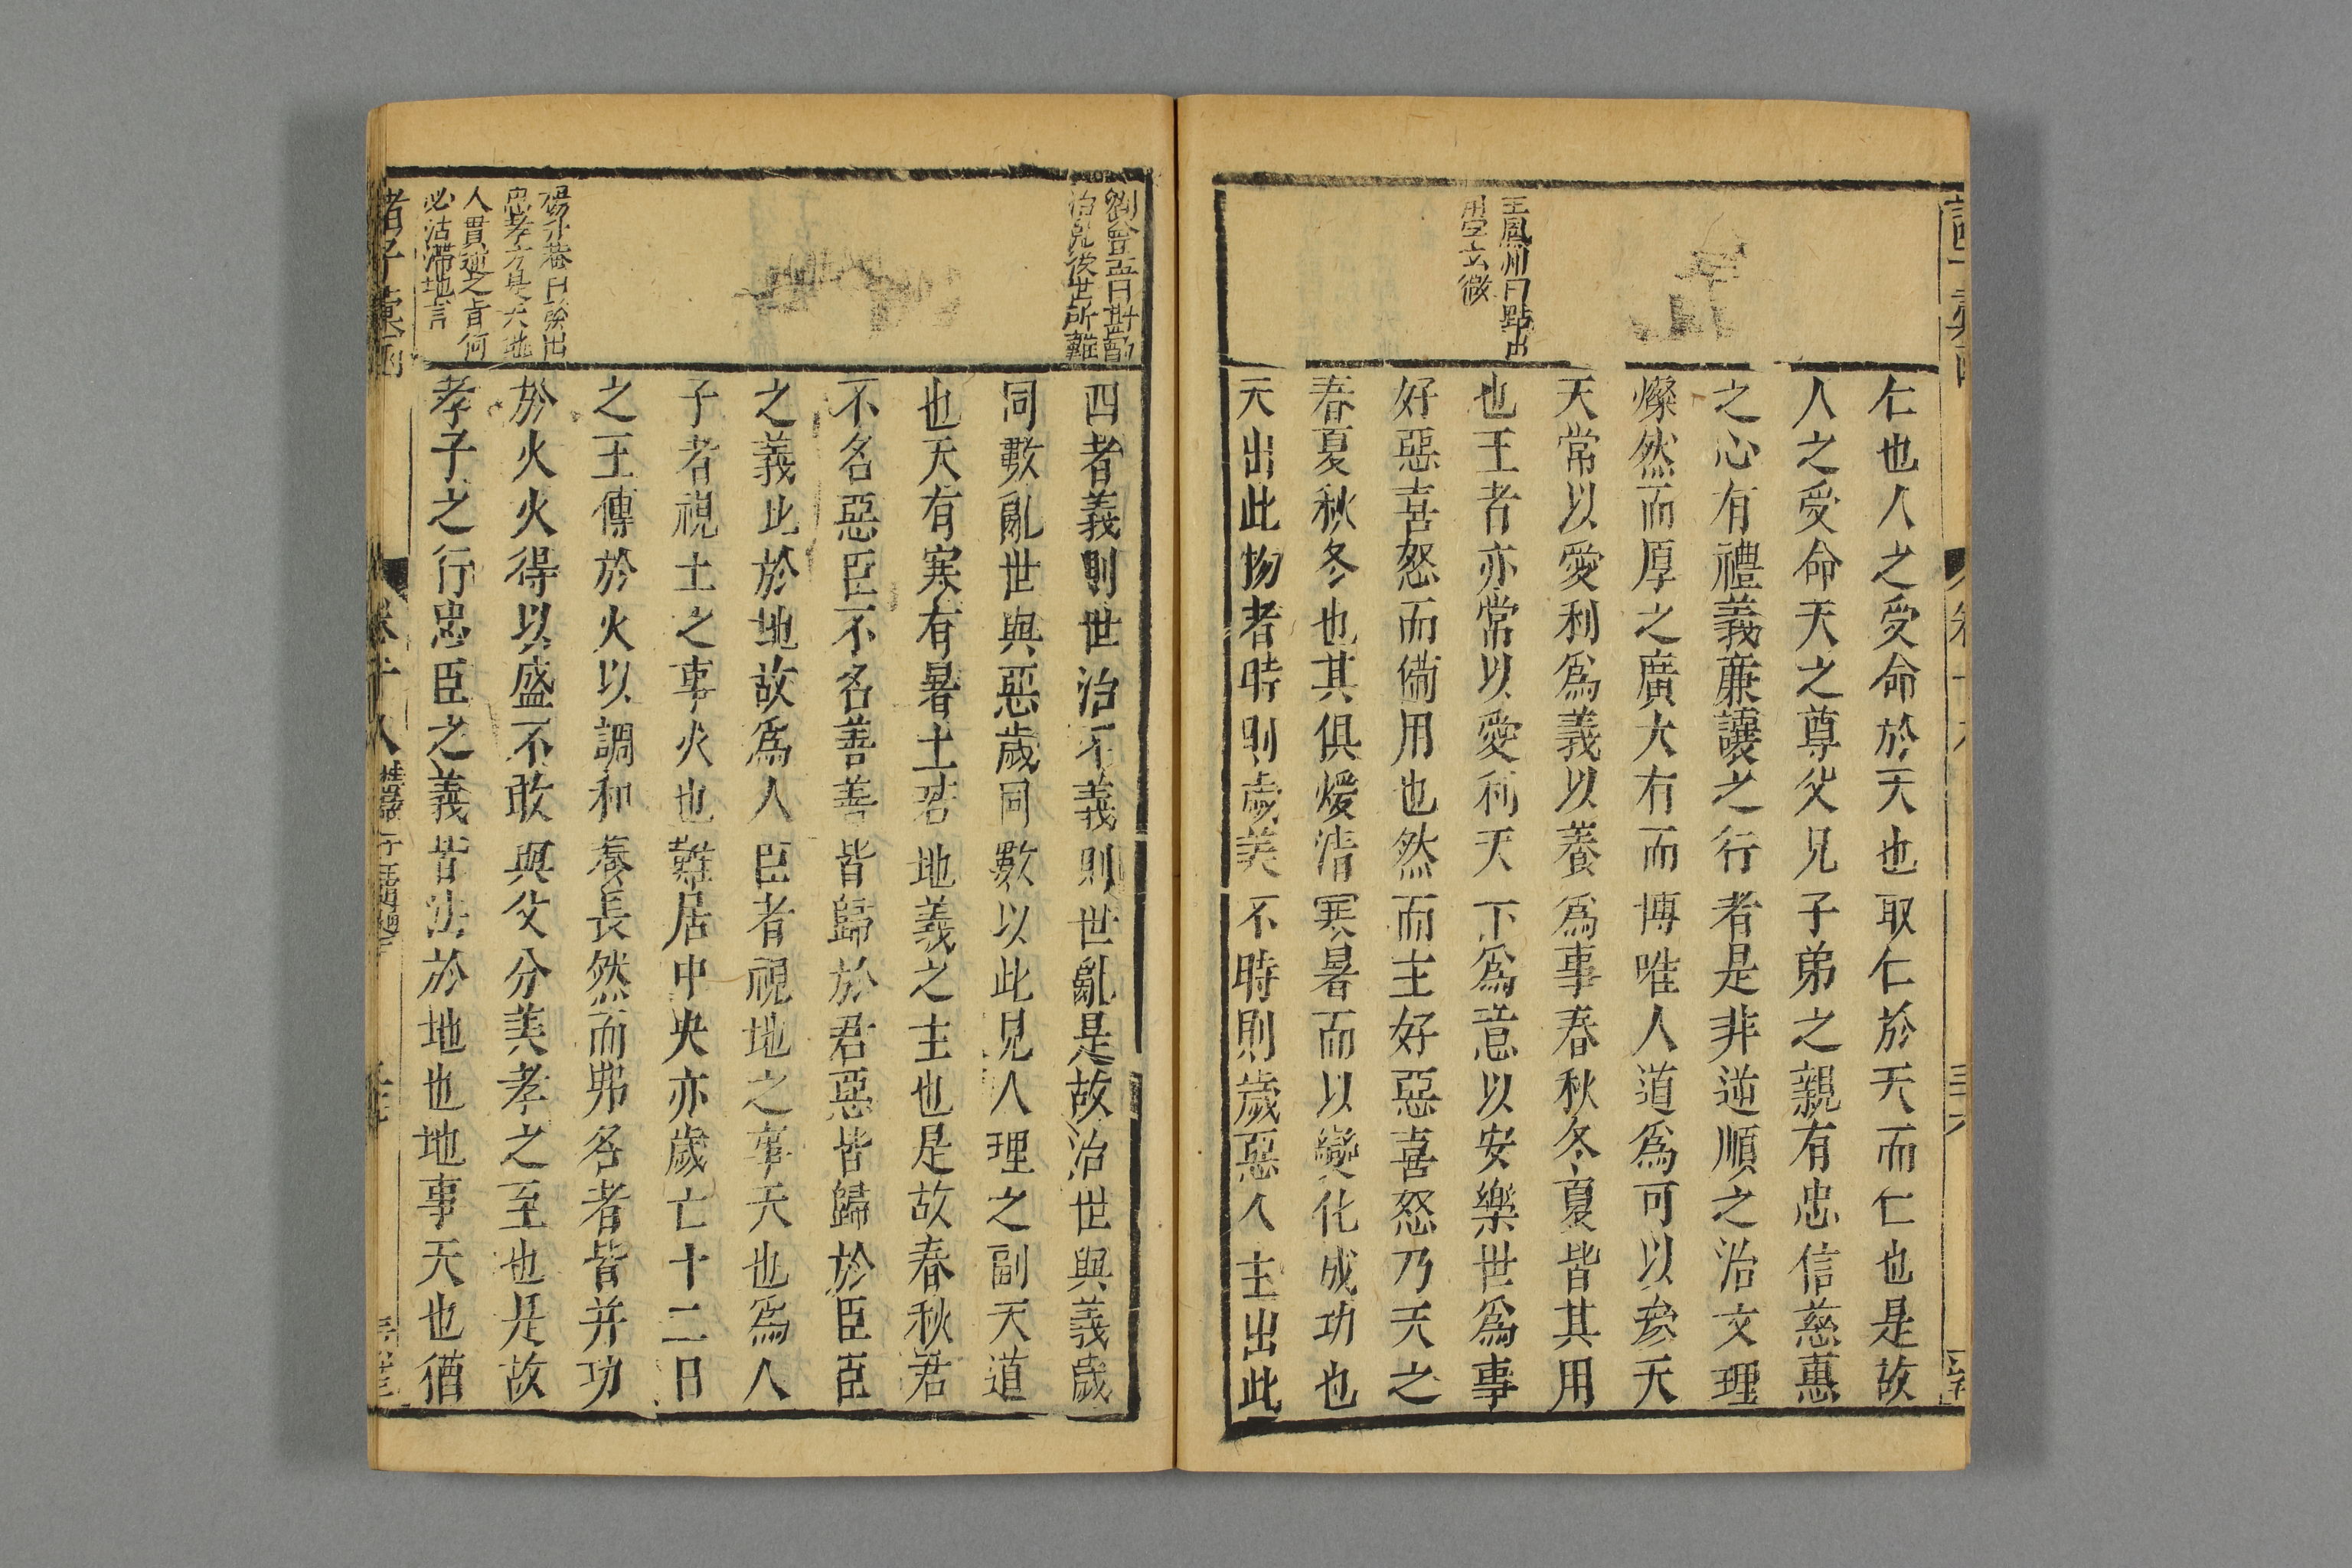 王鳳洲曰點出
用字玄微
仁也人之受命於天也取仁於天而仁也是故
人之受命天之尊父兄子弟之親有忠信慈惠
之心有禮義蔗讓之行者是非逆順之治文理
燦然而厚之廣大有而博唯人道爲可以參天
天常以愛利爲義以養爲事春秋冬夏皆其用
也王者亦常以愛利天下爲意以安樂世爲事
好惡喜怒而備用也然而主好惡喜怒乃天之
春夏秋冬也其俱煖清寒暑而以變化成功也
天出此物者時則歲美不時則歲惡人主出此
劉曰斟酌
治亂後世所難
四者義則世治不義則世亂是故治世與義歲
同數亂世與惡歲同數以此見人理之副天道
也天有寒有暑土若地義之主也是故春秋君
不名惡臣不名善善皆歸於君惡皆歸於臣臣
之義比於地故爲人臣者視地之事天也爲人
子者視土之事火也雖居中央亦歲七十二日
之王傳於火以調和養長然而弗名者皆并功
於火火得以盛不敢與父分美孝之至也是故
孝子之行忠臣之義皆法於地也地事天也猶
楊升菴曰發出
忠孝方是天地
人貫通之旨何
必沾滯地言
諸子彙函 卷十八